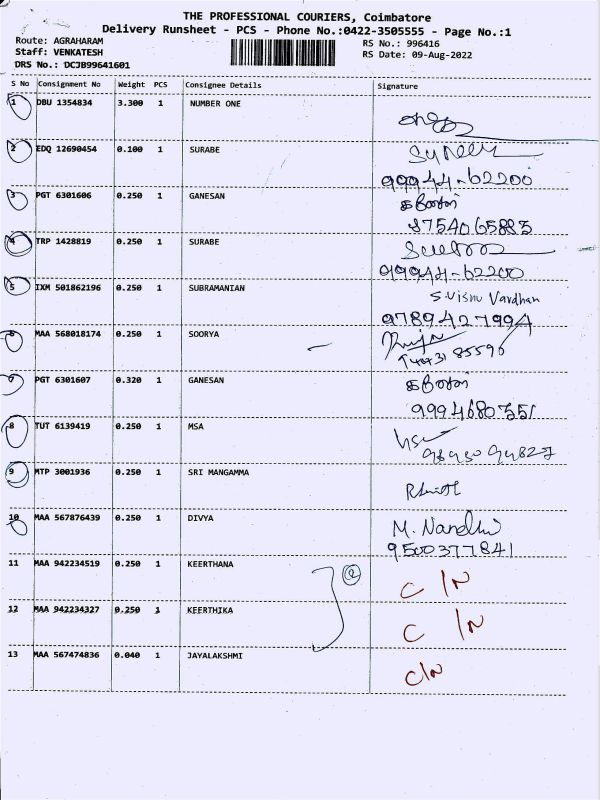 THE PROFESSIONAL COURIERS, Coimbatore
Delivery Runsheet - PCS - Phone No.:0422-3505555 - Page No.:1
Route: AGRAHARAM
RS No.: 996416
Staff: VENKATESH
RS Date: 09-Aug-2022
DRS No.: DCJB99641601
S No Consignment No Weight PCS Consignee Details Signature
1 DBU 1354834 3.300 1 NUMBER ONE
2 EDQ 12690454 0.100 1 SURABE
99944-62200
3 PGT 6301606 0.250 1 GANESAN
8754065885
4 TRP 1428819 0.250 1 SURABE
99944-62200
5 IXM 501862196 0.250 1 SUBRAMANIAN
S.Vishnu Vardhan
9789427994
6 MAA 568018174 0.250 1 SOORYA
7 PGT 6301607 0.320 1 GANESAN
9994680551
8 TUT 6139419 0.250 1 MSA
9 MTP 3001936 0.250 1 SRI MANGAMMA
10 MAA 567876439 0.250 1 DIVYA
M. Nandhi
9500377841
11 MAA 942234519 0.250 1 KEERTHANA
C/N
12 MAA 942234327 0.250 1 KEERTHIKA
C/N
13 MAA 567474836 0.040 1 JAYALAKSHMI
C/N